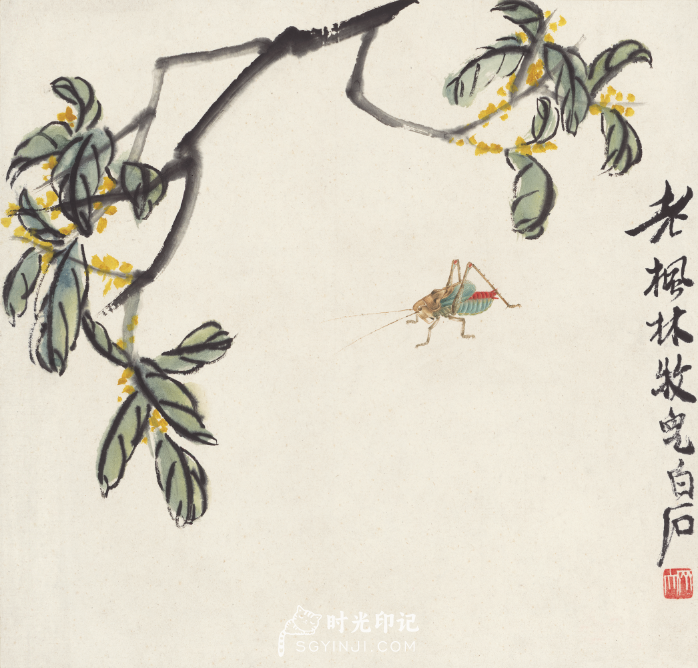 老枫林牧皃白石
时光印记
SGYINJI.COM